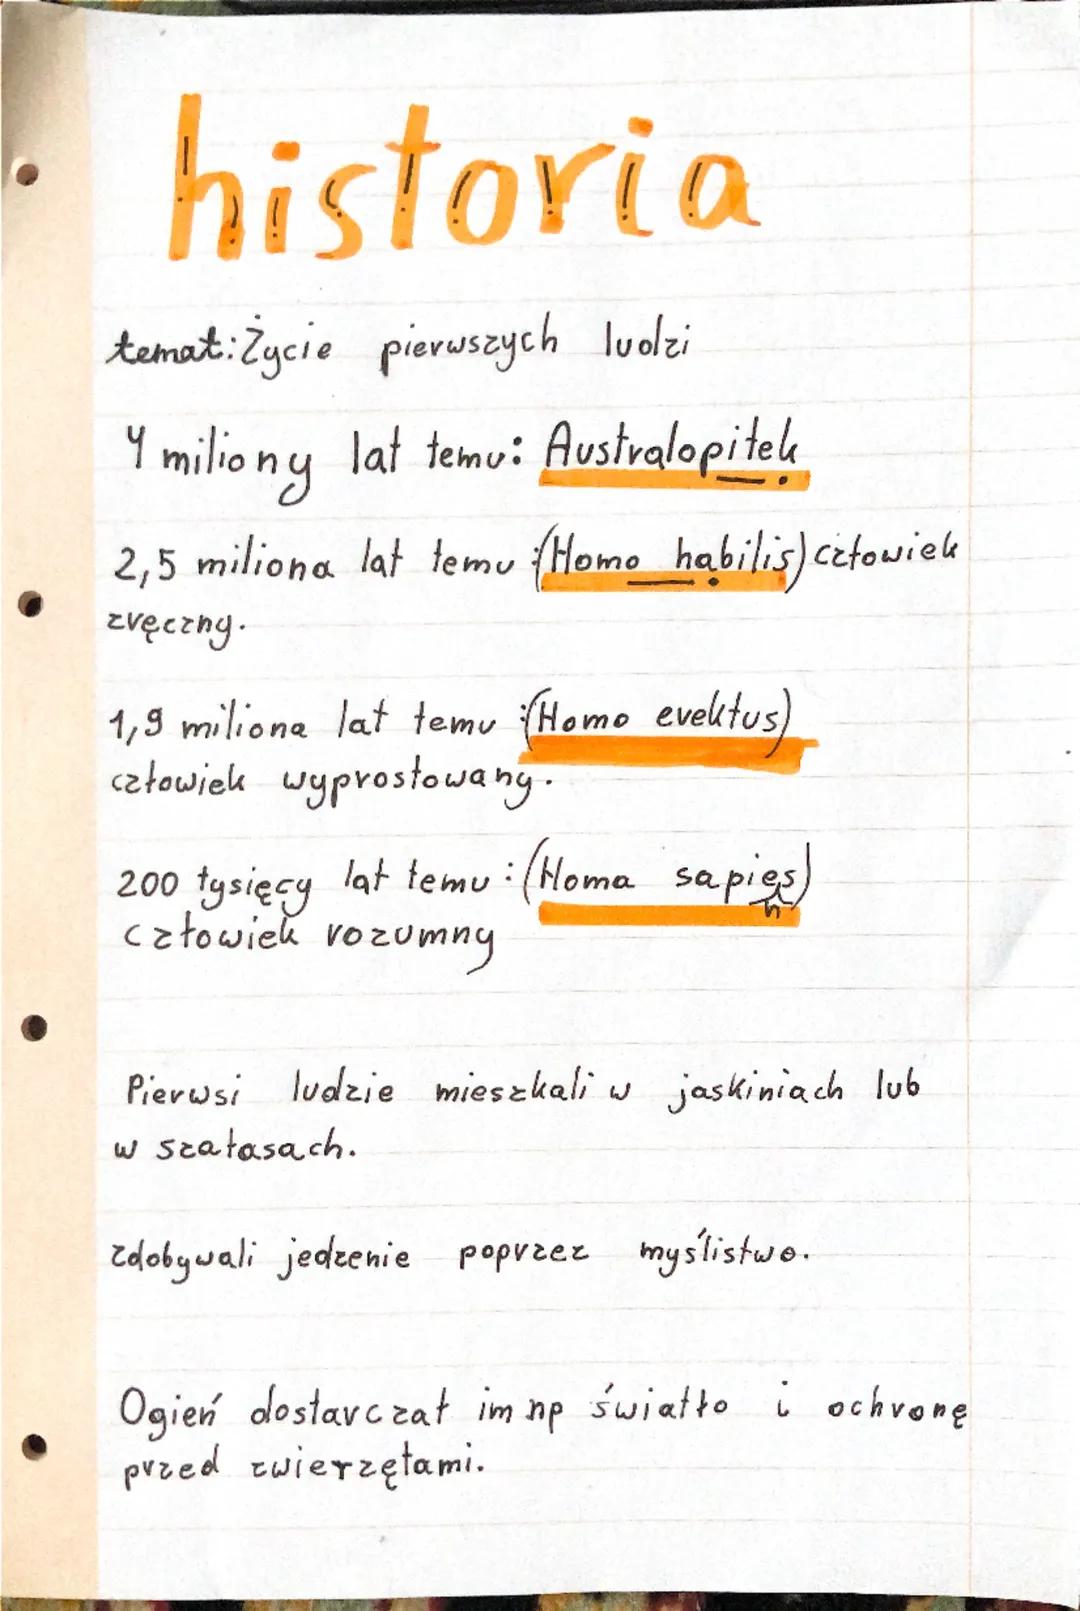 historia
temat: Życie pierwszych ludzi
4 miliony lat temu: Australopitek
2,5 miliona lat temu :(Homo habilis) człowiek
zręczny.
1,9 miliona lat temu :(Homo erektus)
człowiek wyprostowany.
200 tysięcy lat temu : (Homa sapiens)
człowiek rozumny
Pierwsi ludzie mieszkali w jaskiniach lub
w szałasach.
zdobywali jedzenie poprzez myślistwo.
Ogień dostarczał im np światło i ochronę
przed zwierzętami.